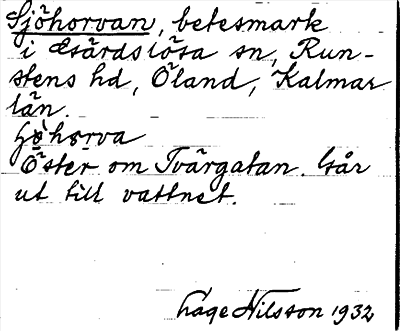 Sjöhorvan, betesmark
i Gärdslösa sn, Run-
stens hd, Öland, Kalmar
län.
Öster om Tvärgatan. Går
ut till vattnet.
Låge Nilsson 1932